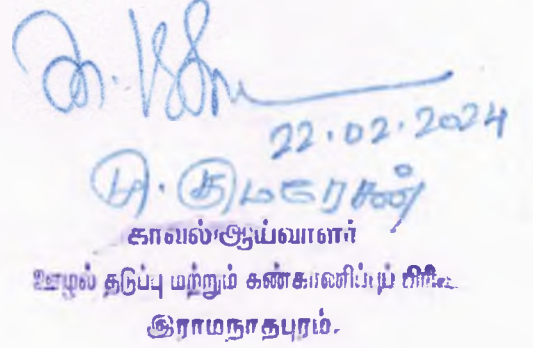 22.02.2024
மு. குமரேசன்
காவல் ஆய்வாளர்
ஊழல் தடுப்பு மற்றும் கண்காணிப்புப் பிரிவு
இராமநாதபுரம்.